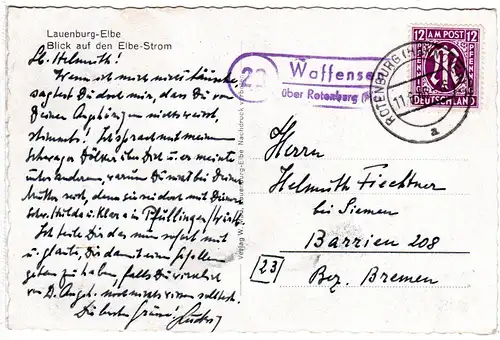 Lauenburg-Elbe
Blick auf den Elbe-Strom
Lb. Helmuth!
Wenn ich mich nicht täusche
sagtest Du doch mir, dass Du von
Deinen Angehörigen nichts weisst,
stimmts! Ich sprach mit meinem
Schwager ihn Dich u. er meinte
unter anderem, warum Du nicht bei Deiner
Mutter seist, denn sie sei doch mit Deiner
Schw. Hilda u. Klara in Pfullingen/Württ.
Ich teile Dir das nur mit
u. glaube, Dir damit einen Gefallen
getan zu haben, falls Du wirklich
von D. Angeh. noch nichts wissen solltest.
Die besten Grüsse!
Nachdruck verboten
Verlag W. Lauenburg-Elbe
22
Waffensen
über Rotenburg
ROTENBURG (H
11.
a
12 AM POST 12
PFENNIG
PFENNIG
DEUTSCHLAND
Herrn
Helmuth Fiechtner
bei Siemen
Barrien 208
23
Bez. Bremen